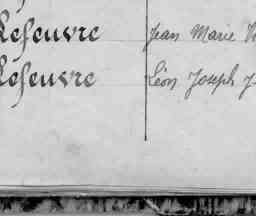 Lefeuvre Jean Marie
Lefeuvre Léon Joseph